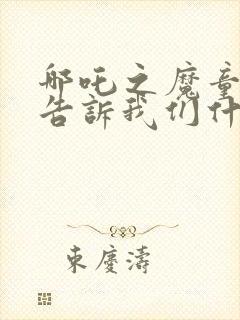 哪吒之魔童
告訴我们什
東慶濤